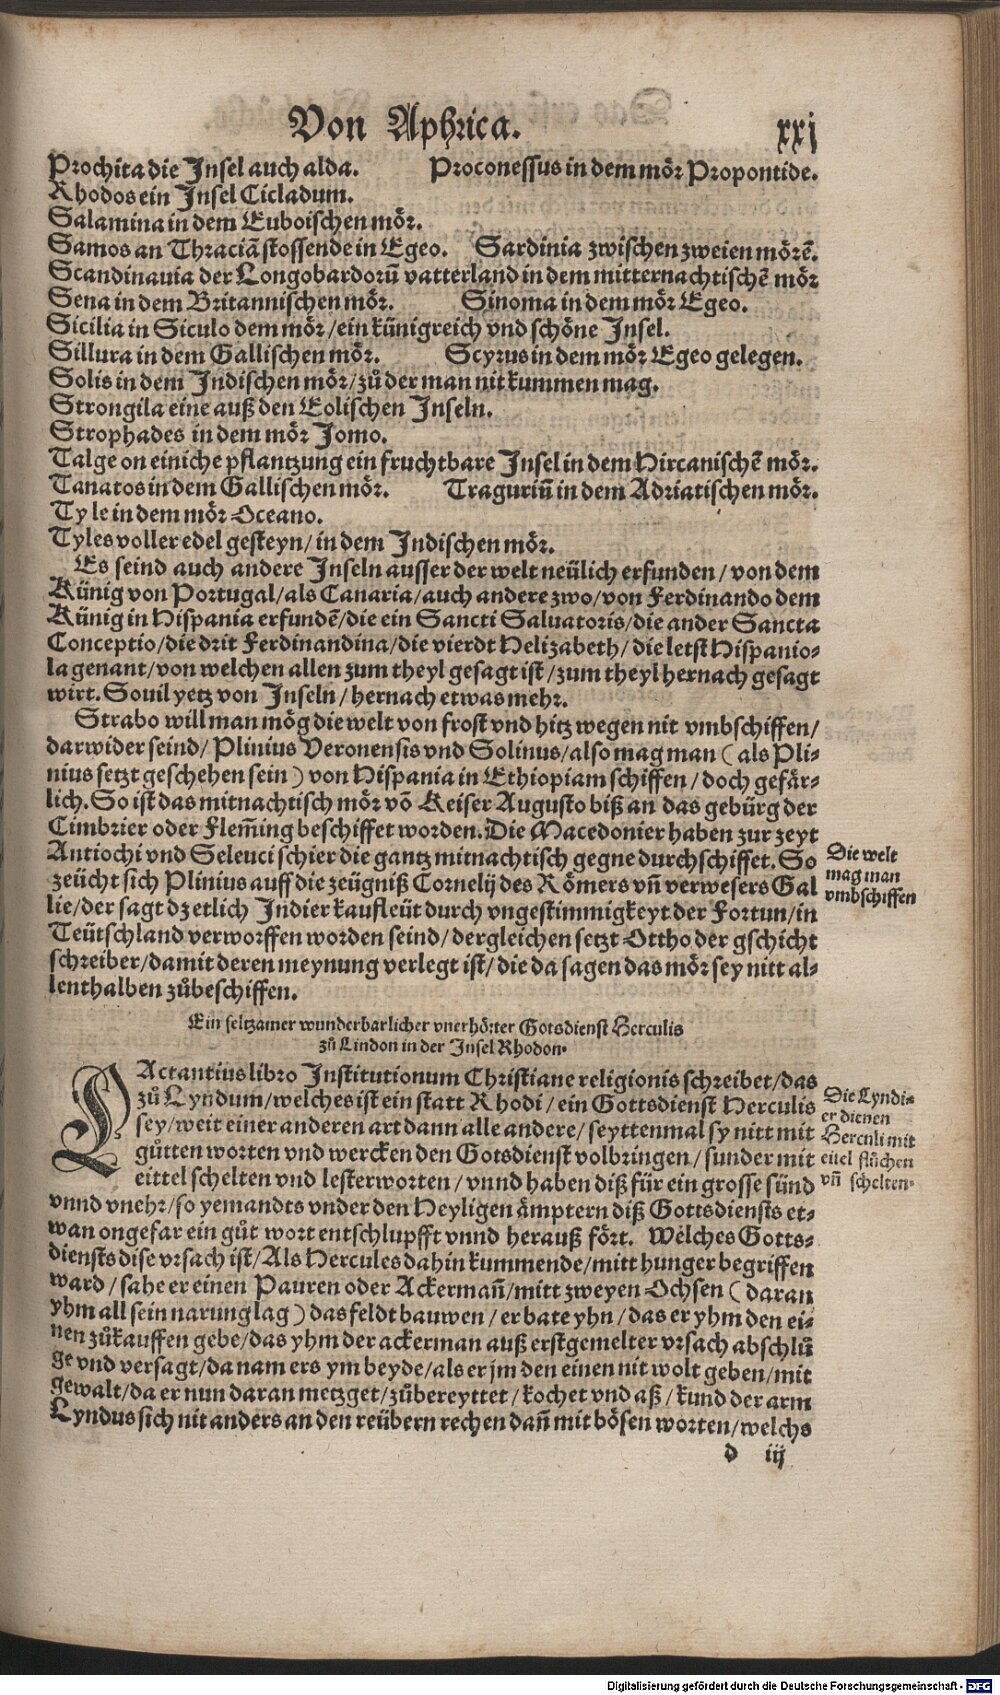 Von Aphrica. xxj
Prochita die Insel auch alda. Proconessus in dem mör Propontide.
Rhodos ein Insel Cicladum.
Salamina in dem Euboischen mör.
Samos an Thraciā stossende in Egeo. Sardinia zwischen zweien mörē.
Scandinauia der Longobardorū vatterland in dem mitternachtischē mör
Sena in dem Britannischen mör. Sinoma in dem mör Egeo.
Sicilia in Siculo dem mör / ein künigreich vnd schöne Insel.
Sillura in dem Gallischen mör. Scyrus in dem mör Egeo gelegen.
Solis in dem Indischen mör / zů der man nit kummen mag.
Strongila eine auß den Eolischen Inseln.
Strophades in dem mör Jomo.
Talge on einiche pflantzung ein fruchtbare Insel in dem Hircanischē mör.
Tanatos in dem Gallischen mör. Traguriū in dem Adriatischen mör.
Tyle in dem mör Oceano.
Tyles voller edel gesteyn / in dem Indischen mör.
Es seind auch andere Inseln ausser der welt neülich erfunden / von dem
Künig von Portugal / als Canaria / auch andere zwo / von Ferdinando dem
Künig in Hispania erfundē / die ein Sancti Saluatoris / die ander Sancta
Conceptio / die drit Ferdinandina / die vierdt Helizabeth / die letst Hispanio-
la genant / von welchen allen zum theyl gesagt ist / zum theyl hernach gesagt
wirt. Souil yetz von Inseln / hernach etwas mehr.
Strabo will man mög die welt von frost vnd hitz wegen nit vmbschiffen /
darwider seind / Plinius Veronensis vnd Solinus / also mag man ( als Pli-
nius setzt geschehen sein ) von Hispania in Ethiopiam schiffen / doch gefär-
lich. So ist das mitnachtisch mör vō Keiser Augusto biß an das gebürg der
Cimbrier oder Flem̄ing beschiffet worden. Die Macedonier haben zur zeyt
Antiochi vnd Seleuci schier die gantz mitnachtisch gegne durchschiffet. So
zeücht sich Plinius auff die zeügniß Cornelij des Römers vn̄ verwesers Gal
lie / der sagt dz etlich Indier kaufleüt durch vngestimmigkeyt der Fortun / in
Teütschland verworffen worden seind / dergleichen setzt Ottho der gschicht
schreiber / damit deren meynung verlegt ist / die da sagen das mör sey nitt al-
lenthalben zůbeschiffen.
Die welt
mag man
vmbschiffen
Ein seltzamer wunderbarlicher vnerhörter Gotsdienst Herculis
zů Lindon in der Insel Rhodon.
LActantius libro Institutionum Christiane religionis schreibet / das
zů Lyndum / welches ist ein statt Rhodi / ein Gottsdienst Herculis
sey / weit einer anderen art dann alle andere / seyttenmal sy nitt mit
gůtten worten vnd wercken den Gotsdienst volbringen / sunder mit
eittel schelten vnd lesterworten / vnnd haben diß für ein grosse sünd
vnnd vnehr / so yemandts vnder den Heyligen ämptern diß Gottsdiensts et-
wan ongefar ein gůt wort entschlupfft vnnd herauß fört. Welches Gotts-
diensts dise vrsach ist / Als Hercules dahin kummende / mitt hunger begriffen
ward / sahe er einen Pauren oder Ackerman̄ / mitt zweyen Ochsen ( daran
yhm all sein narung lag ) das feldt bauwen / er bate yhn / das er yhm den ei-
nen zůkauffen gebe / das yhm der ackerman auß erstgemelter vrsach abschlů
ge vnd versagt / da nam ers ym beyde / als er jm den einen nit wolt geben / mit
gewalt / da er nun daran metzget / zůbereyttet / kochet vnd aß / kund der arm
Lyndus sich nit anders an den reübern rechen dan̄ mit bösen worten / welchs
Die Lyndi-
er dienen
Herculi mit
eitel flůchen
vn̄ schelten.
d iij
Digitalisierung gefördert durch die Deutsche Forschungsgemeinschaft - DFG